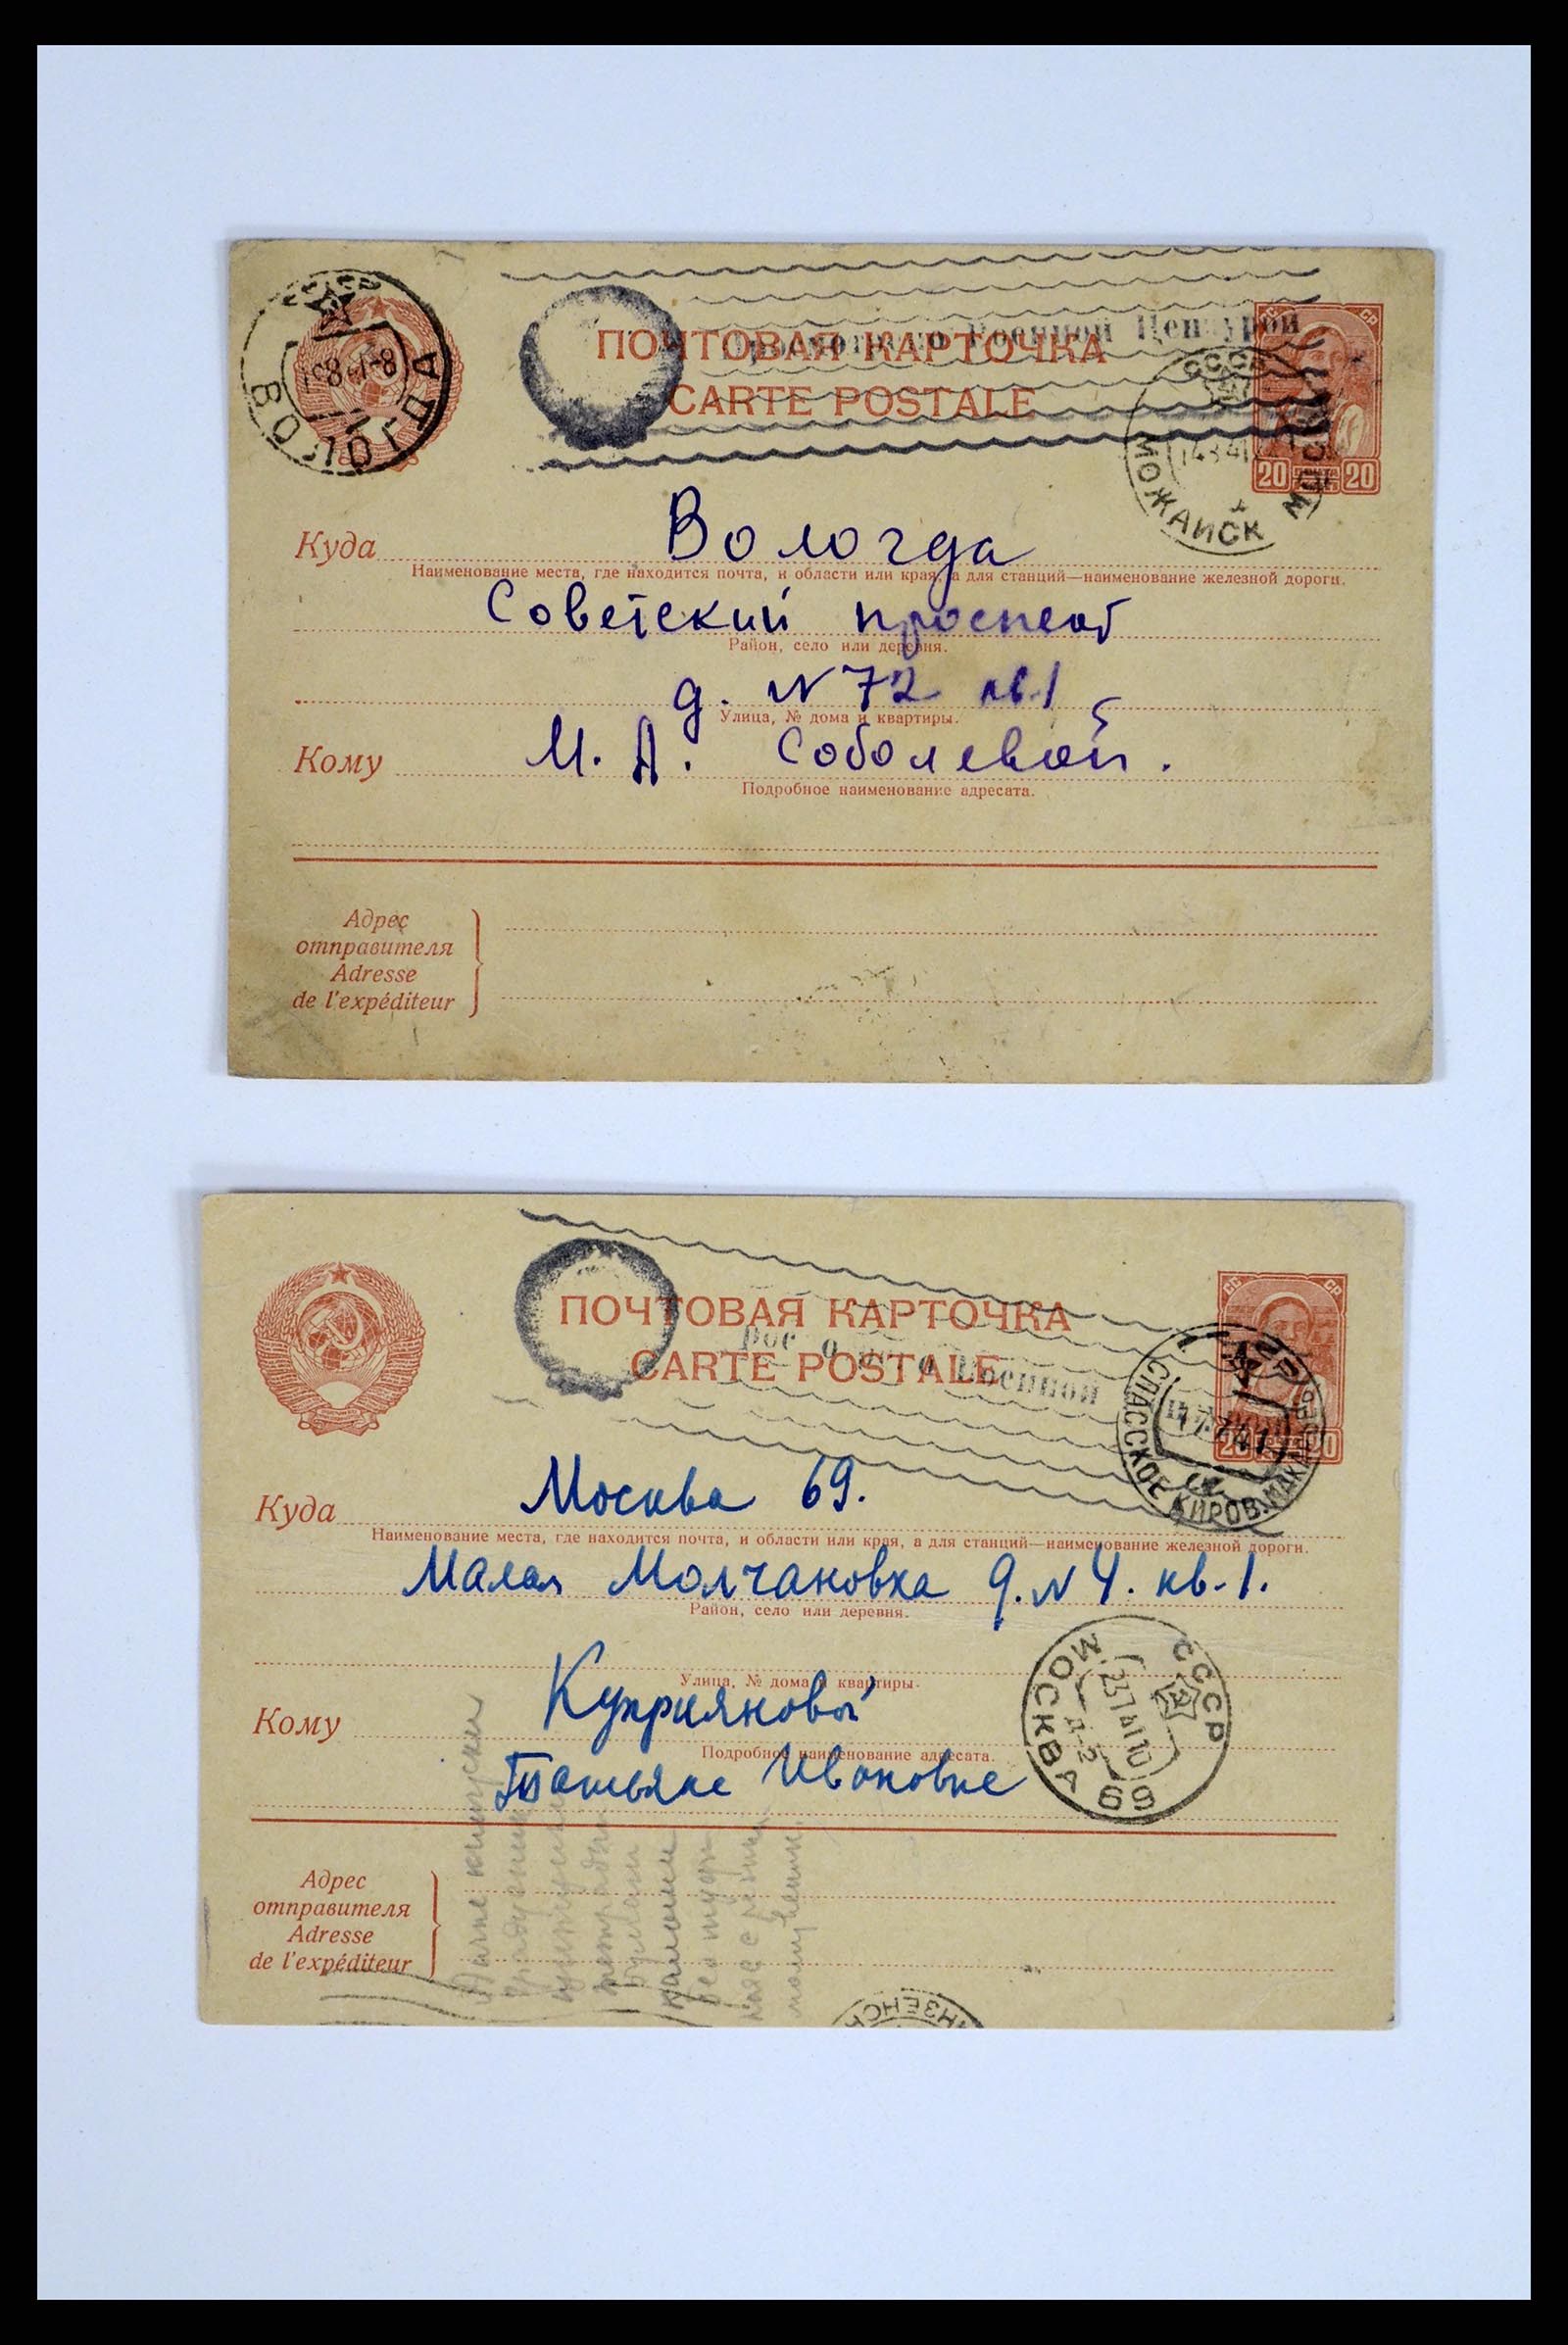 СССР
ВОЛОГДА
ПОЧТОВАЯ КАРТОЧКА
Просмотрено Военной Цензурой
CARTE POSTALE
СССР
МОЖАЙСК МОСК
20 20
Куда Вологда
Наименование места, где находится почта, и области или края, а для станций—наименование железной дороги.
Советский проспект
Район, село или деревня.
д. N 72 кв. 1
Улица, № дома и квартиры.
Кому М. А. Соболевой.
Подробное наименование адресата.
Адрес
отправителя
Adresse
de l'expéditeur
ПОЧТОВАЯ КАРТОЧКА
CARTE POSTALE
Военной
СС СР
СПАССКОЕ КИРОВ.
20 20
Куда Москва 69.
Наименование места, где находится почта, и области или края, а для станций—наименование железной дороги.
Малая Молчановка д. N 4. кв. 1.
Район, село или деревня.
Улица, № дома и квартиры.
Кому Куприяновой
Подробное наименование адресата.
Татьяне Ивановне
СССР
МОСКВА 69
23 7 41 10
Адрес
отправителя
Adresse
de l'expéditeur